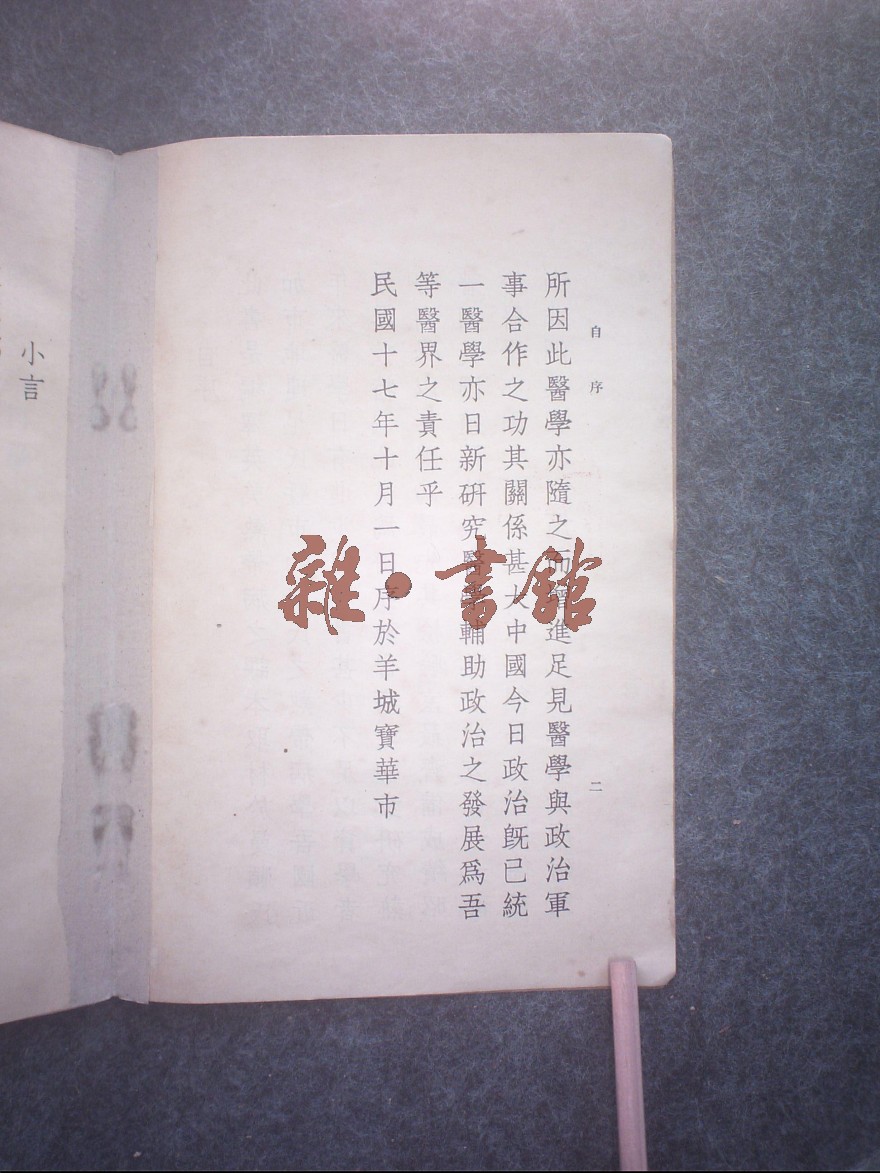 自序 二
所因此醫學亦隨之而增進足見醫學與政治軍
事合作之功其關係甚大中國今日政治旣已統
一醫學亦日新硏究醫學輔助政治之發展爲吾
等醫界之責任乎
民國十七年十月一日序於羊城寶華市
小言
雜·書館